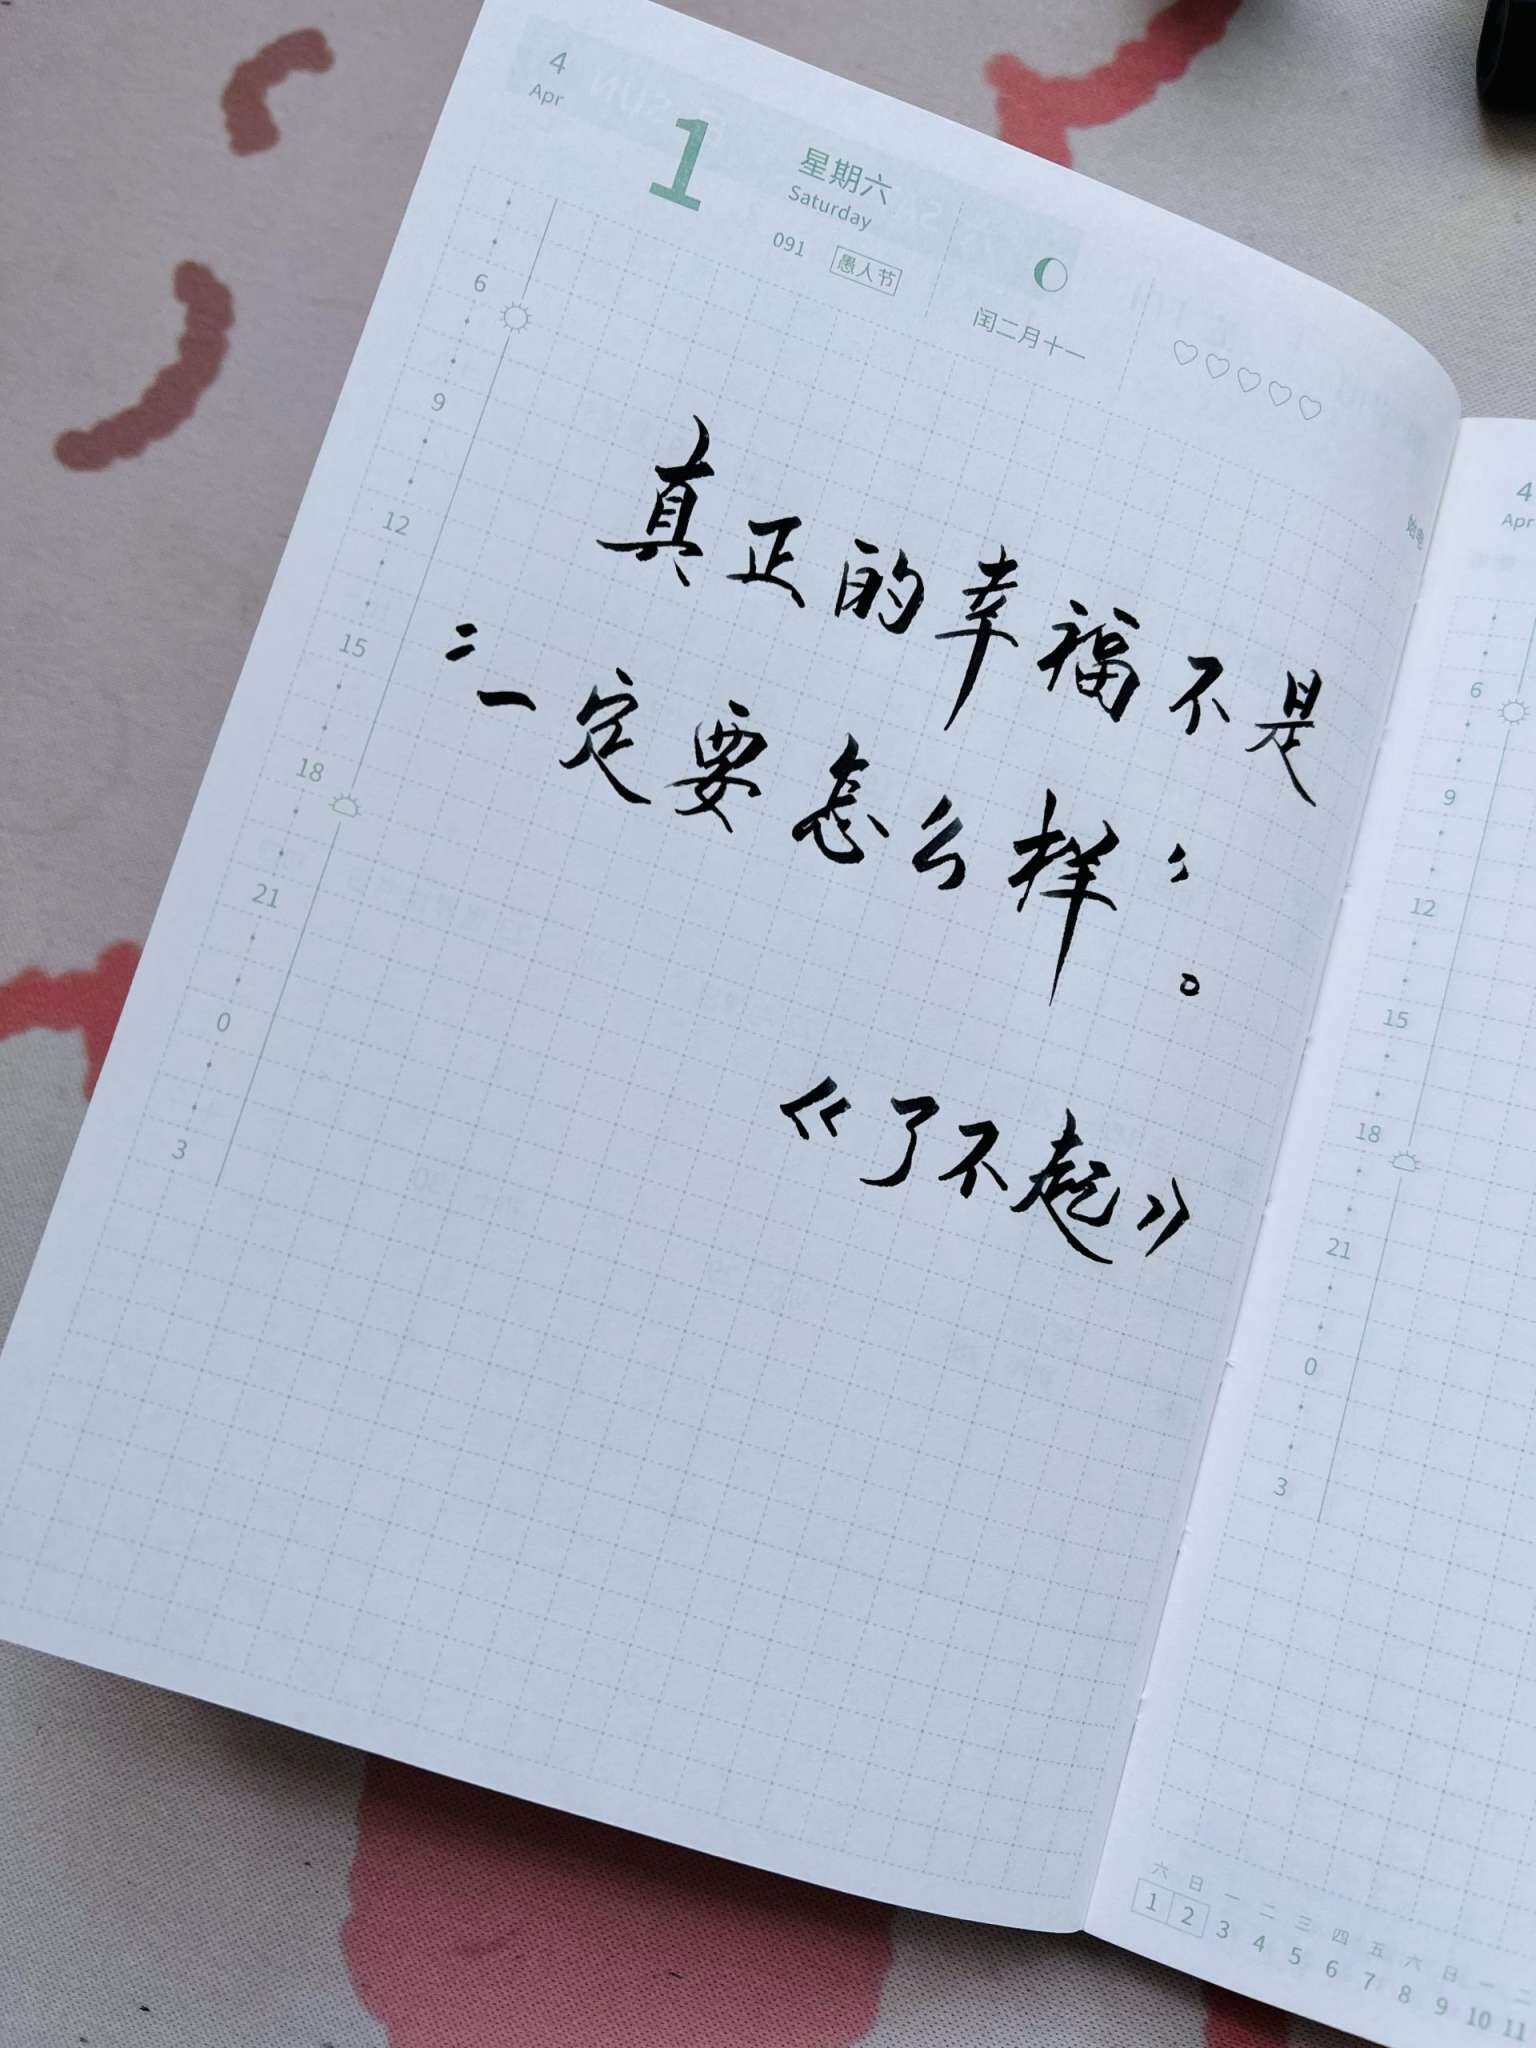 4
Apr
1
星期六
Saturday
091
愚人节
闰二月十一
真正的幸福不是
“一定要怎么样”。
《了不起》
6
9
12
15
18
21
0
3
4
Apr
6
9
12
15
18
21
0
3
六 日 一 二 三 四 五 六 日 一 二
1 2 3 4 5 6 7 8 9 10 11